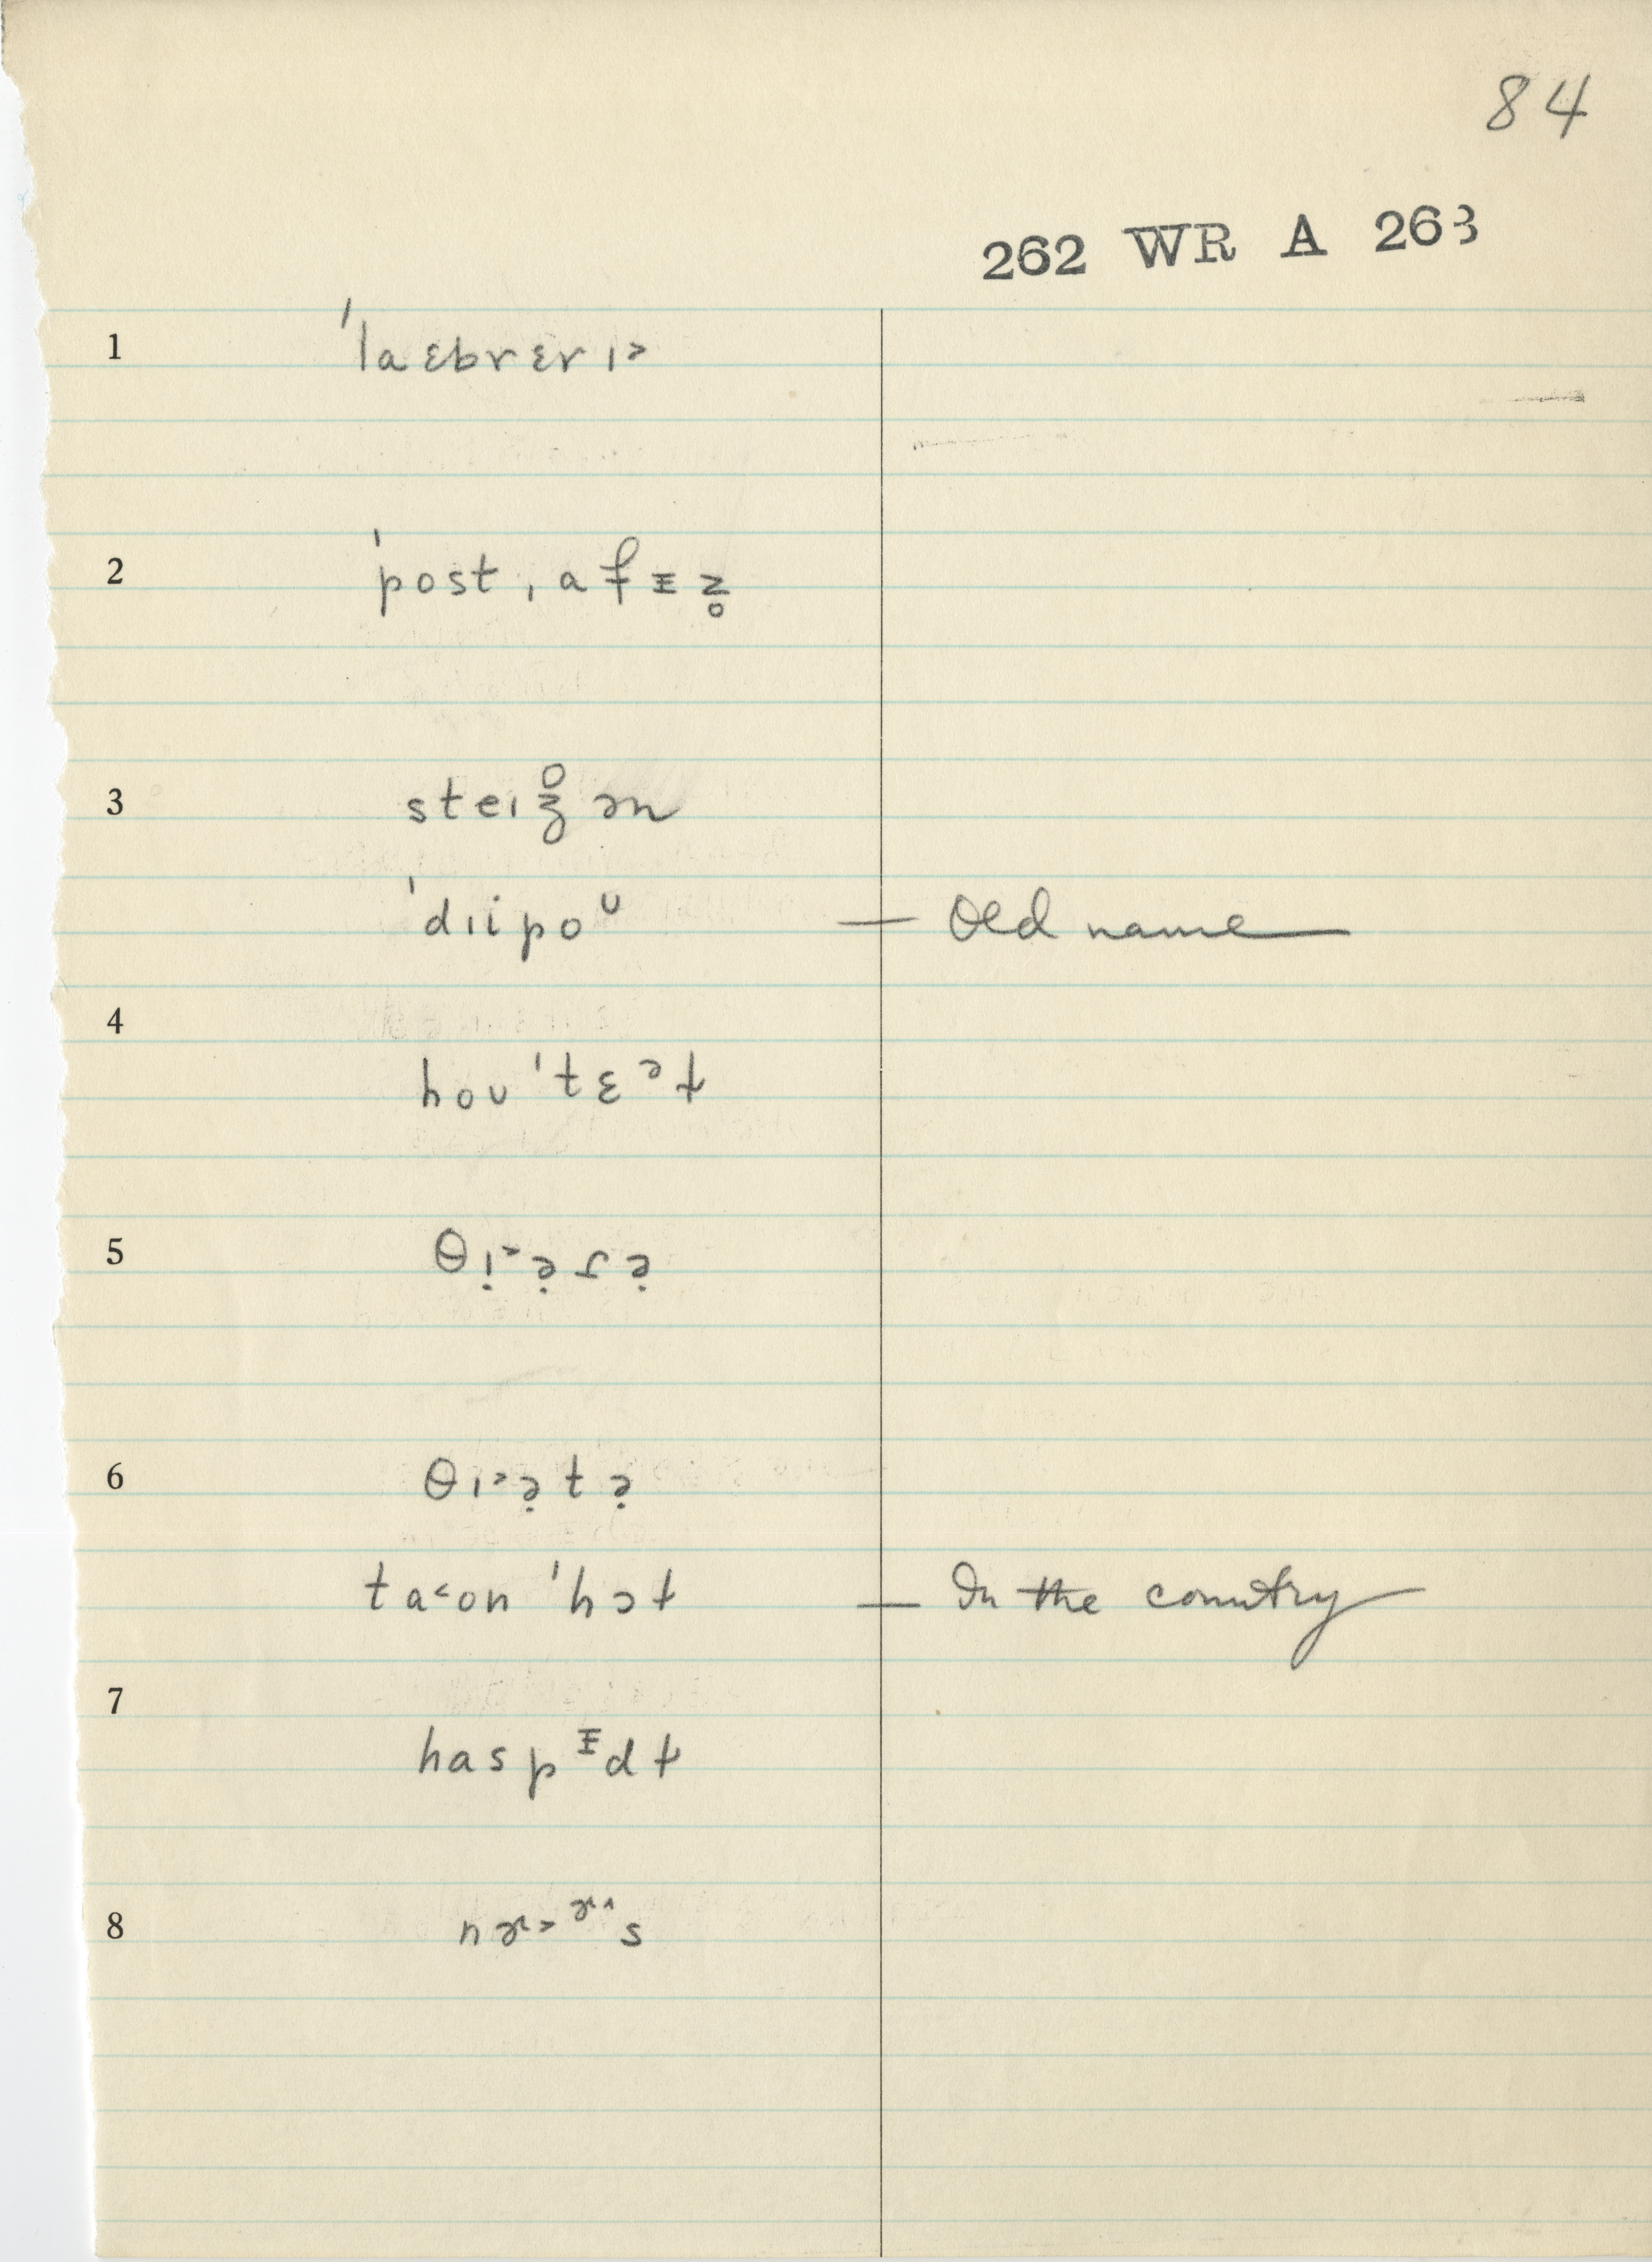 84
262 WR A 263
1 ˈlaɛbrɛrɪ˃
2 ˈpostˌafᵻz̥
3 steɪʒ̊ən
ˈdɪipoᶷ — Old name
4 hoʊˈtɛᵊɫ
5 θɪ˃ə̣ɾə̣
6 θɪ˃ə̣tə̣
ta˂onˈhɔɫ — In the country
7 haspᵻdɫ
8